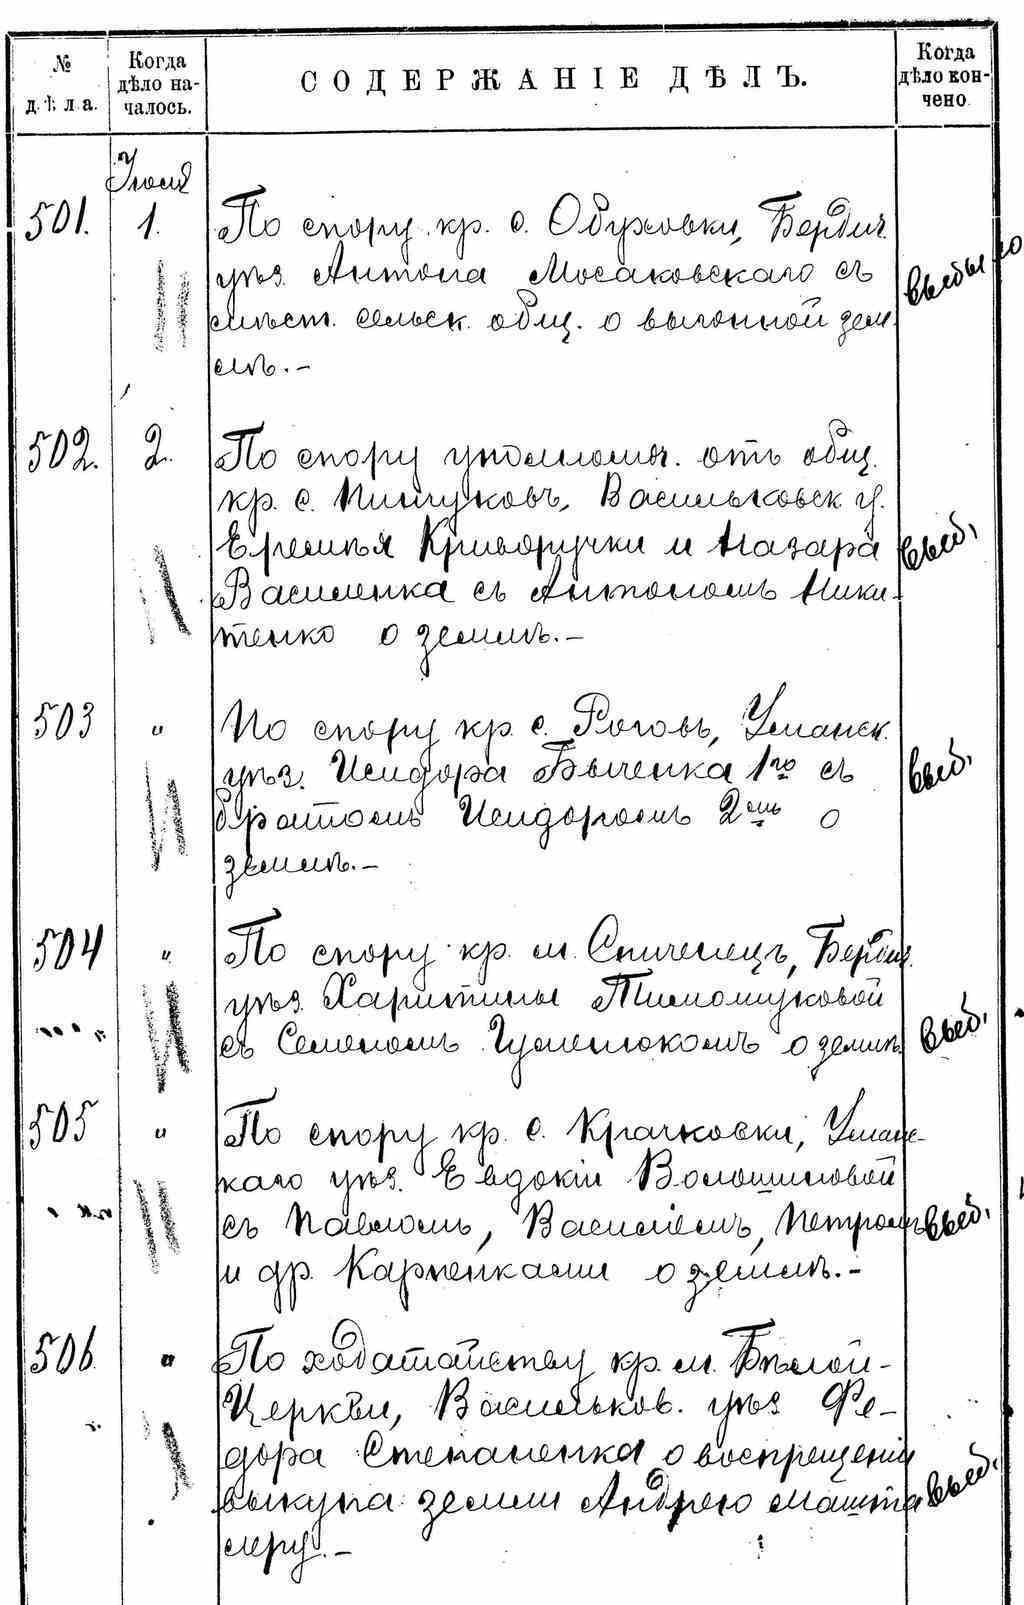 № дѣла.
Когда дѣло на-
чалось.
СОДЕРЖАНІЕ ДѢЛЪ.
Когда дѣло кон-
чено
501.
1.
По спору кр. с. Обуховки, Бердич.
уѣз. Антона Мосаковскаго съ
мѣст. сельск. общ. о выгонной зем-
лѣ.-
выбыло
502.
2.
По спору уполномоч. отъ общ.
кр. с. Пищуковъ, Васильковск у.
Еремѣя Криворучки и Назара
Василенка съ Антономъ Ники-
тенко о землѣ.-
выб.
503
"
По спору кр. с. Роговъ, Уманск.
уѣз. Исидора Быченка 1го съ
братомъ Исидоромъ 2мъ о
землѣ.-
выб.
504
"
По спору кр. м. Спиченецъ, Бердич.
уѣз. Харитины Тимощуковой
съ Семеномъ Гуменюкомъ о землѣ
выб.
505
"
По спору кр. с. Крачковки, Уманс-
каго уѣз. Евдокіи Волошиновой
съ Павломъ, Василіемъ, Петромъ
и др. Карпенками о землѣ.-
выб.
506
"
По ходатайству кр. м. Бѣлой-
Церкви, Васильков. уѣз Фе-
дора Степаненка о воспрещеніи
выкупа земли Андрею Машта
леру.-
выб.